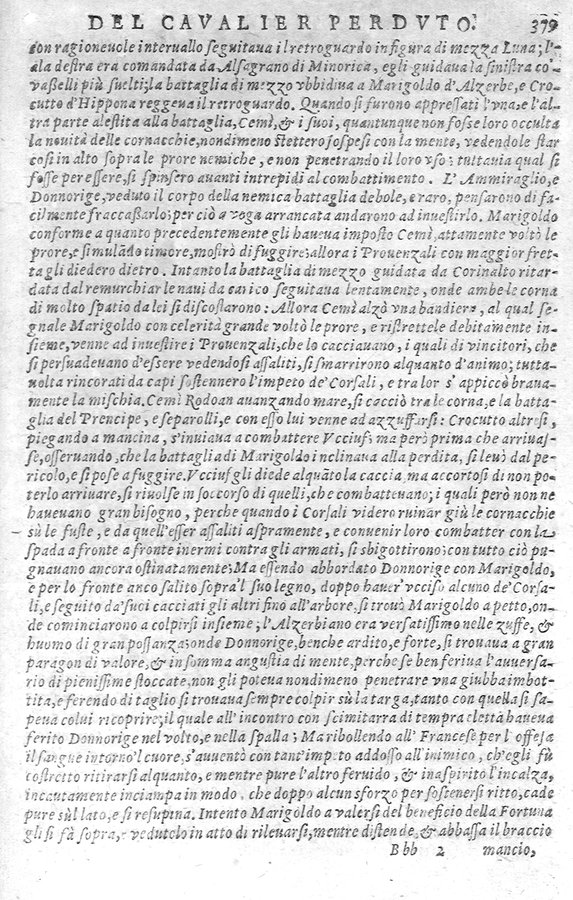 DEL CAVALIER PERDVTO. 379
con ragioneuole interuallo seguitaua il retroguardo in figura di mezza Luna; l'-
ala destra era comandata da Alsagrano di Minorica, egli guidaua la sinistra co'
vasselli più suelti; la battaglia di mezzo vbbidiua a Marigoldo d'Alzerbe, e Cro-
cutto d'Hippona reggeua il retroguardo. Quando si furono appressati l'vna, e l'al-
tra parte alestita alla battaglia, Cemì, & i suoi, quantunque non fosse loro occulta
la nouità delle cornacchie, nondimeno stettero sospesi con la mente, vedendole star
così in alto sopra le prore nemiche, e non penetrando il loro vso; tuttauia qual si
fosse per essere, si spinsero auanti intrepidi al combattimento. L'Ammiraglio, e
Donnorige, veduto il corpo della nemica battaglia debole, e raro, pensarono di fa-
cilmente fraccassarlo; perciò a voga arrancata andarono ad inuestirlo. Marigoldo
conforme a quanto precedentemente gli haueua imposto Cemì, attamente voltò le
prore, e simulādo timore, mostrò di fuggire; allora i Prouenzali con maggior fret-
ta gli diedero dietro. Intanto la battaglia di mezzo guidata da Corinalto ritar-
data dal remurchiar le naui da carico seguitaua lentamente, onde ambe le corna
di molto spatio da lei si discostarono: Allora Cemì alzò vna bandiera, al qual se-
gnale Marigoldo con celerità grande voltò le prore, e ristrettele debitamente in-
sieme, venne ad inuestire i Prouenzali, che lo cacciauano, i quali di vincitori, che
si persuadeuano d'essere vedendosi assaliti, si smarrirono alquanto d'animo; tutta-
uolta rincorati da capi sostennero l'impeto de' Corsali, e tra lor s'appiccò braua-
mente la mischia. Cemì Rodoan auanzando mare, si cacciò tra le corna, e la batta-
glia del Prencipe, e separolli, e con esso lui venne ad azzuffarsi: Crocutto altresì,
piegando a mancina, s'inuiaua a combattere Vcciuf; ma però prima che arriuas-
se, osseruando, che la battaglia di Marigoldo inclinaua alla perdita, si leuò dal pe-
ricolo, e si pose a fuggire. Vcciuf gli diede alquāto la caccia, ma accortosi di non po-
terlo arriuare, si riuolse in soccorso di quelli, che combatteuano; i quali però non ne
haueuano gran bisogno, perche quando i Corsali videro ruinar giù le cornacchie
sù le fuste, e da quell'esser assaliti aspramente, e conuenir loro combatter con la
spada a fronte a fronte inermi contra gli armati, si sbigottirono; con tutto ciò pu-
gnauano ancora ostinatamente; Ma essendo abbordato Donnorige con Marigoldo,
e per lo fronte anco salito sopra'l suo legno, doppo hauer vcciso alcuno de' Corsa-
li, e seguito da' suoi cacciati gli altri fino all'arbore, si trouò Marigoldo a petto, on-
de cominciarono a colpirsi insieme; l'Alzerbiano era versatissimo nelle zuffe, &
huomo di gran possanza; onde Donnorige, benche ardito, e forte, si trouaua a gran
paragon di valore, & in somma angustia di mente, perche se ben feriua l'auuersa-
rio di pienissime stoccate, non gli poteua nondimeno penetrare vna giubba imbot-
tita, e ferendo di taglio si trouaua sempre colpir sù la targa, tanto con quella si sa-
peua colui ricoprire; il quale all'incontro con scimitarra di tempra eletta haueua
ferito Donnorige nel volto, e nella spalla; Ma ribollendo all'Francese per l'offesa
il sangue intorno'l cuore, s'auuentò con tant'impeto addosso all'inimico, ch'egli fù
costretto ritirarsi alquanto, e mentre pure l'altro feruido, & inaspirito l'incalza,
incautamente inciampa in modo, che doppo alcun sforzo per sostenersi ritto, cade
pure sù'l lato, e si resupina. Intento Marigoldo a valersi del beneficio della Fortuna
gli si fà sopra, e vedutolo in atto di rileuarsi, mentre distende, & abbassa il braccio
Bbb 2 mancio,